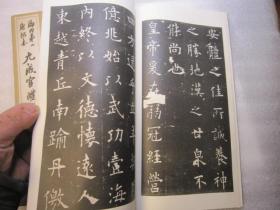 安體之佳所誠養神
之勝地漢之甘泉不
能尚也
皇帝爰在弱冠經營
億兆始以武功壹海
內終以文德懷遠人
東越青丘南踰丹徼
九成宮醴